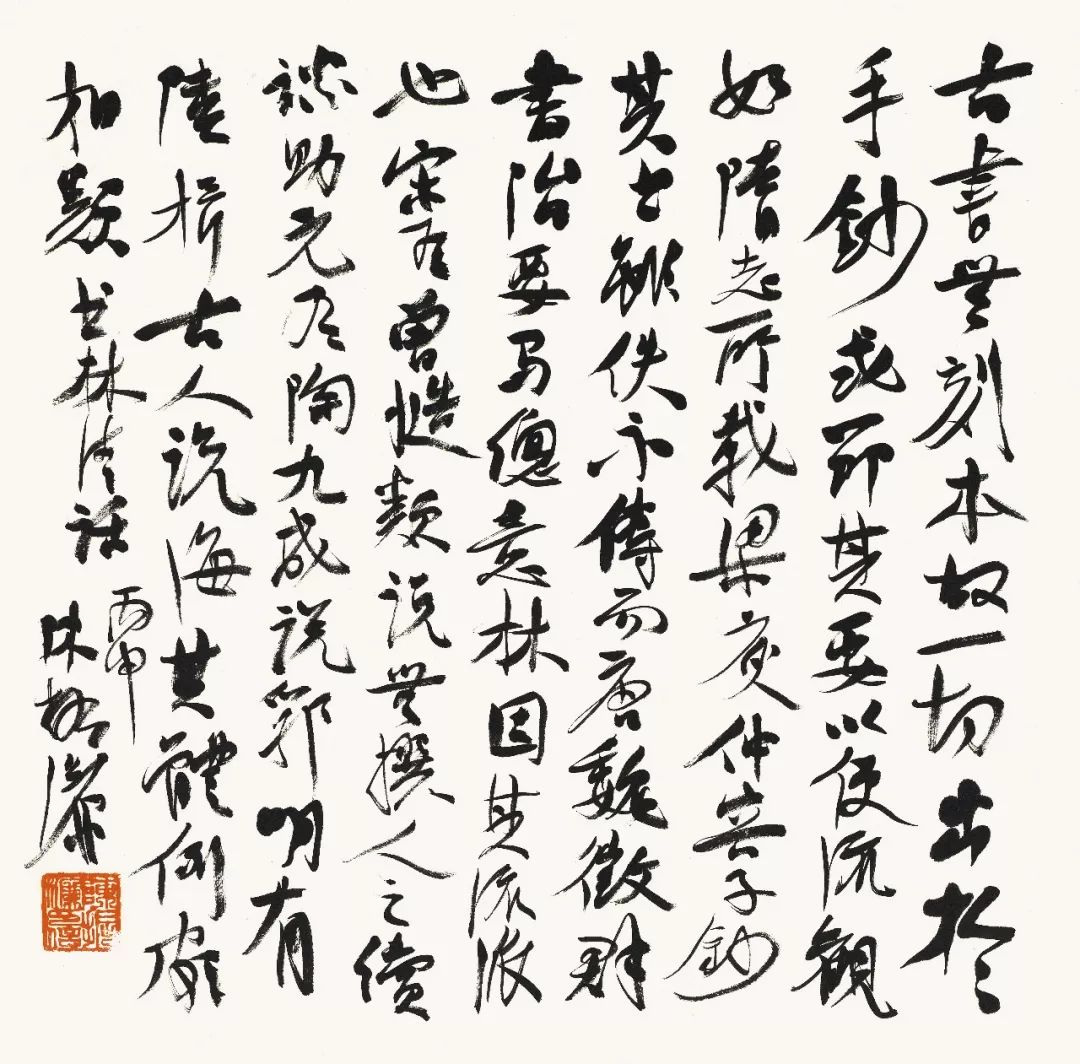 古書無刻本故一切出於
手鈔或節其要以便流觀
如隋志所載梁庾仲容子鈔
其書雖佚不傳而唐魏徵群
書治要馬總意林因其流派
也宋有曾慥類說無撰人之續
談助元有陶九成說郛明有
陸楫古人說海其體例頗
相類書林清話
丙申